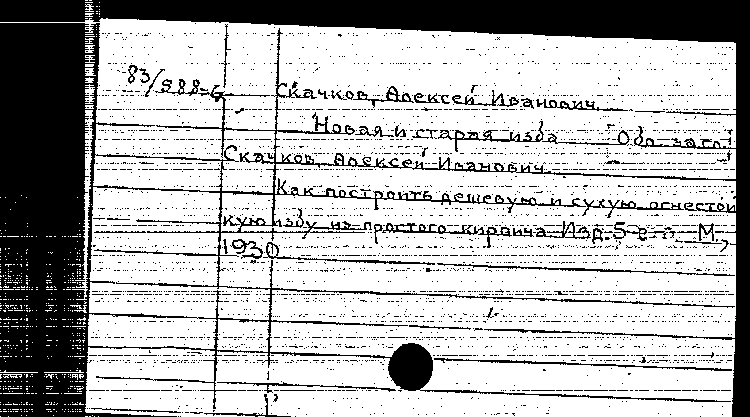 83/988=G Скачков, Алексей Иванович.
Новая и старая изба [Обл. загл.]
Скачков, Алексей Иванович.
Как построить дешевую и сухую огнестой
кую избу из простого кирпича Изд. 5-е М.,
1930